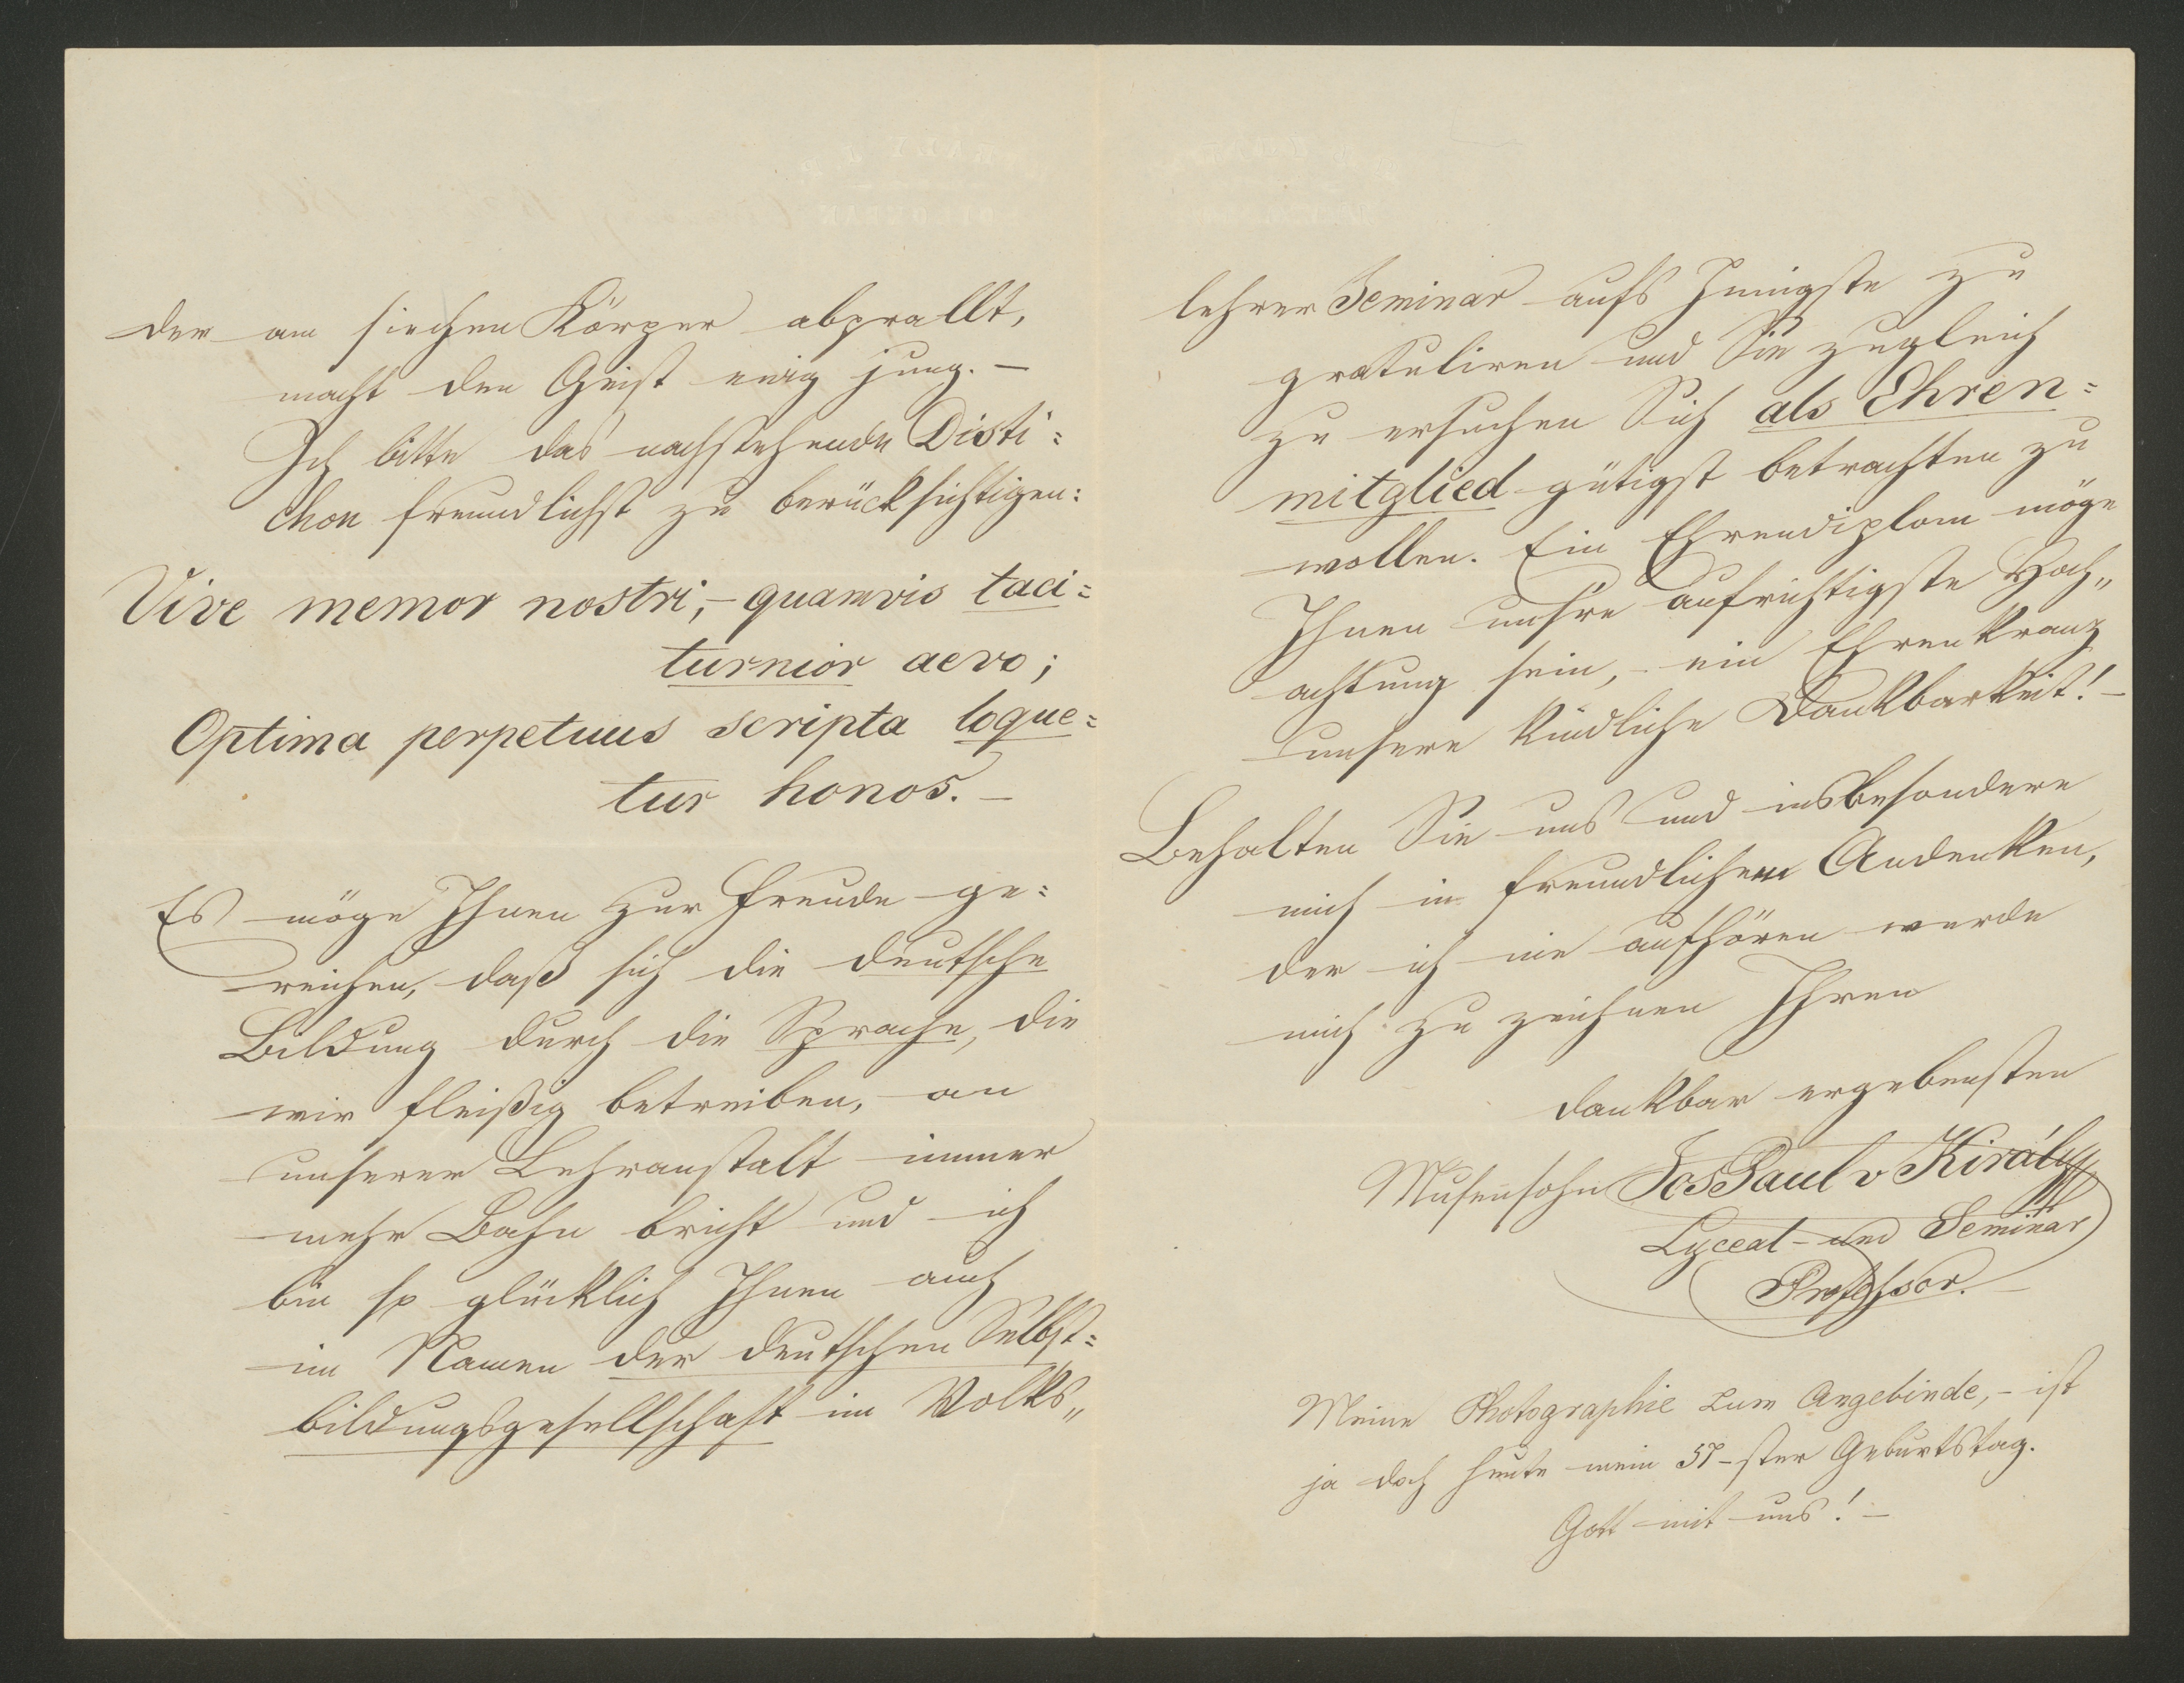 der am siechen Körper abprallt,
macht den Geist ewig jung. –
Ich bitte das nachstehende Disti=
chon freundlichst zu berücksichtigen:
Vive memor nostri, – quamvis taci=
turnior aevo;
Optima perpetuus scripta loque=
tur honos. –
Es möge Ihnen zur Freude ge=
reichen, daß sich die deutsche
Bildung durch die Sprache, die
wir fleißig betreiben, an
unserer Lehranstalt immer
mehr Bahn bricht und ich
bin so glücklich Ihnen auch
im Namen der deutschen Selbst=
bildungsgesellschaft im Volks„
lehrer Seminar aufs Innigste zu
gratuliren und Sie zugleich
zu ersuchen Sich als Ehren=
mitglied gütigst betrachten zu
wollen. Ein Ehrendiplom möge
Ihnen unsre aufrichtigste Hoch„
achtung sein, – ein Ehrenkranz
unsere kindliche Dankbarkeit! –
Behalten Sie uns und insbesondere
mich in freundlichem Andenken,
der ich nie aufhören werde
mich zu zeichnen Ihren
dankbar ergebensten
Musensohn Jos Paul v Király
Lyceal- und Seminar
Professor. –
Meine Photographie zum Angebinde, – ist
ja doch heute mein 57-ster Geburtstag.
Gott mit uns! –